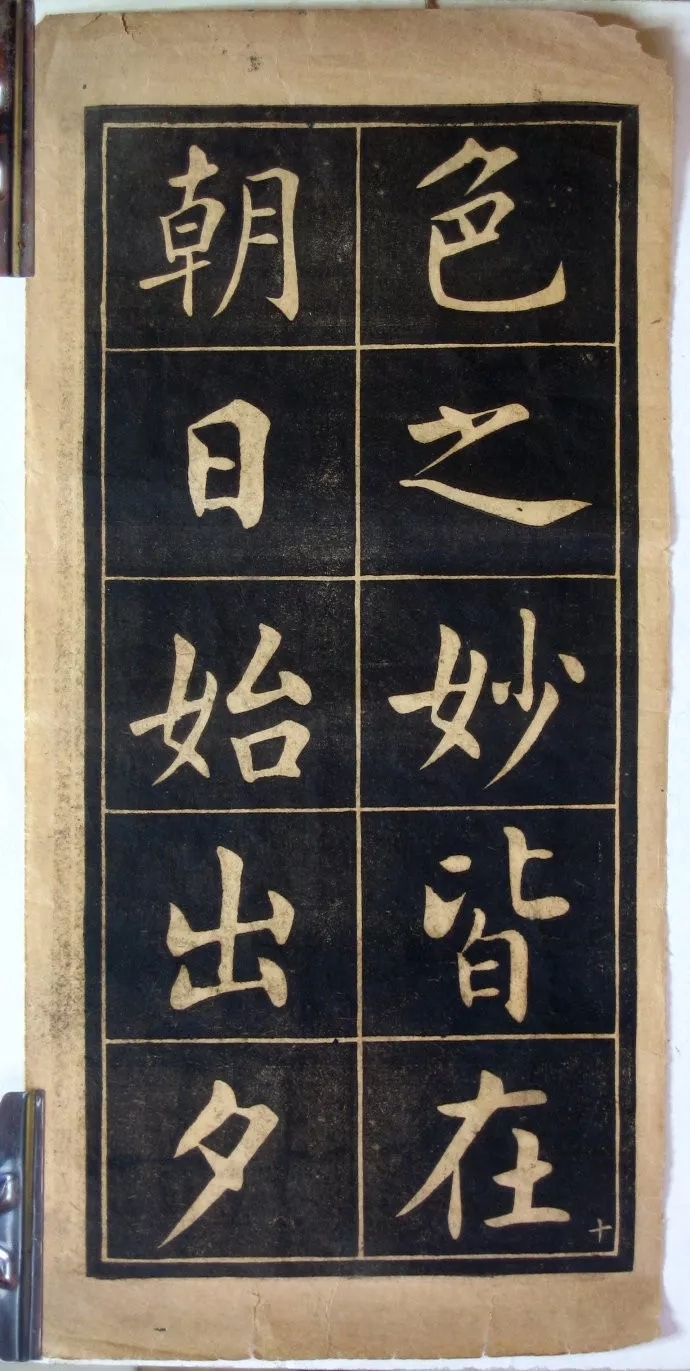 色之妙皆在
朝日始出夕
十